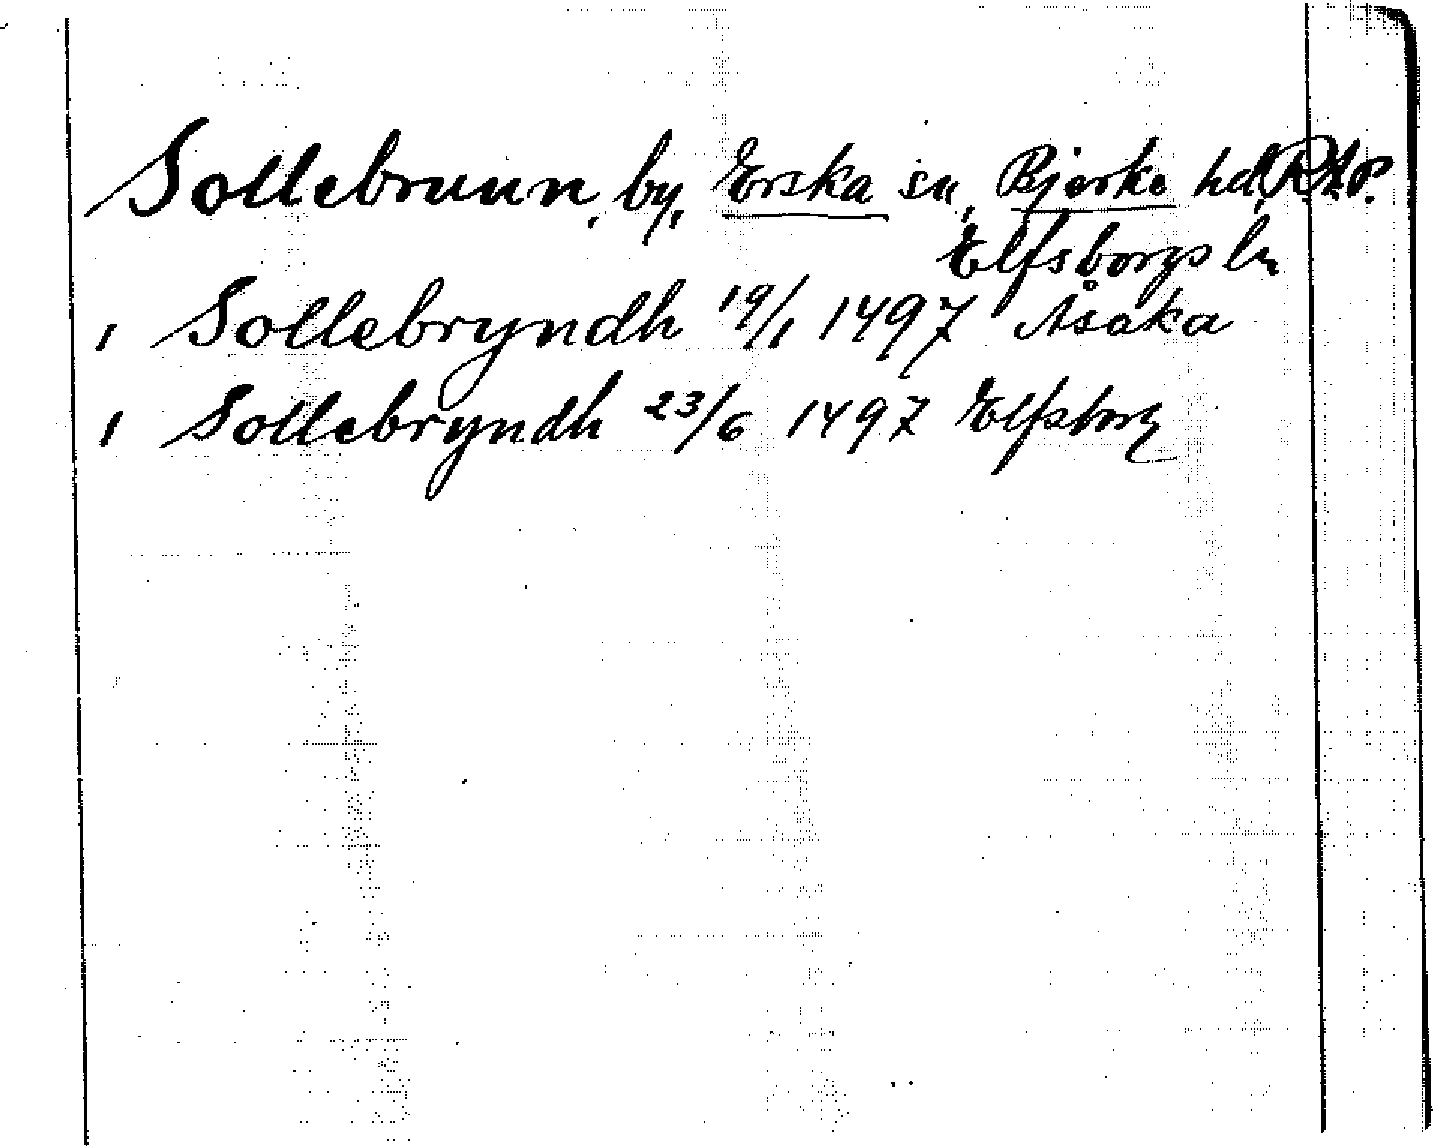 Sollebrunn, by, Erska sn, Bjerke hd, RAp.
Elfsborgs ln
1 Sollebryndh 19/1 1497 Åsaka
1 Sollebryndh 23/6 1497 Elfsborg